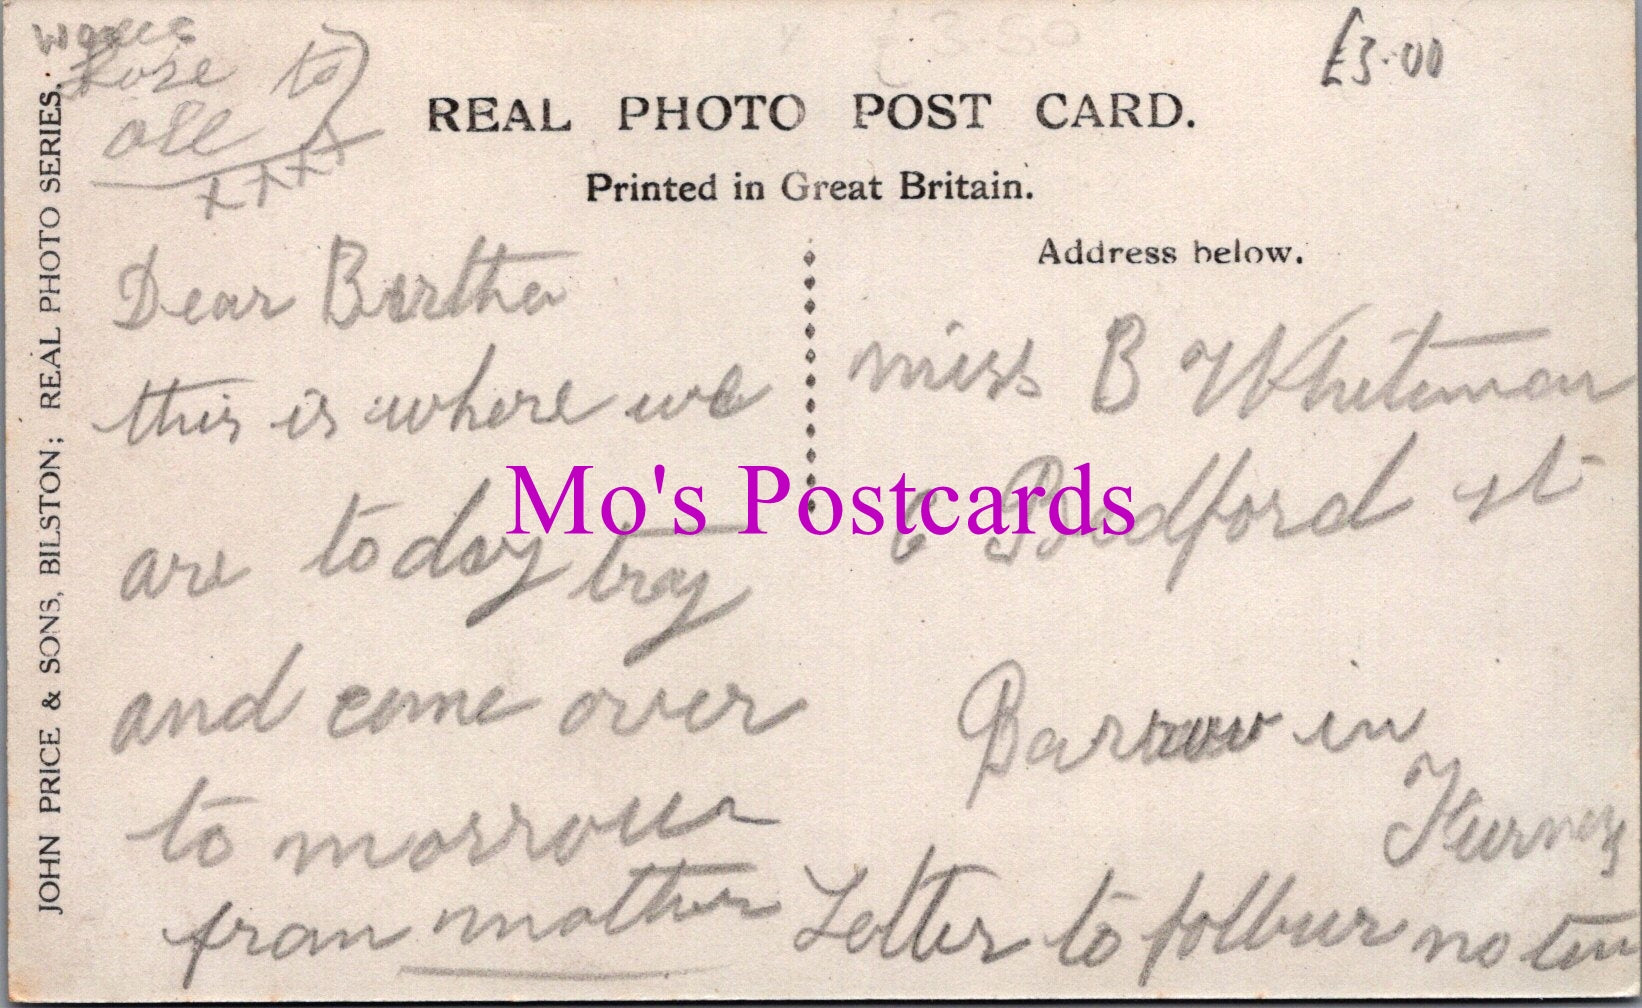 to
all
x x x x
£3.50
£3.00
REAL PHOTO POST CARD.
Printed in Great Britain.
Address below.
JOHN PRICE & SONS, BILSTON; REAL PHOTO SERIES.
Dear Bertha
this is where we
are today try
and come over
to morrow
from mother
miss B Whiteman
6 Bedford st
Barrow in
Furness
Letter to follow no
Mo's Postcards